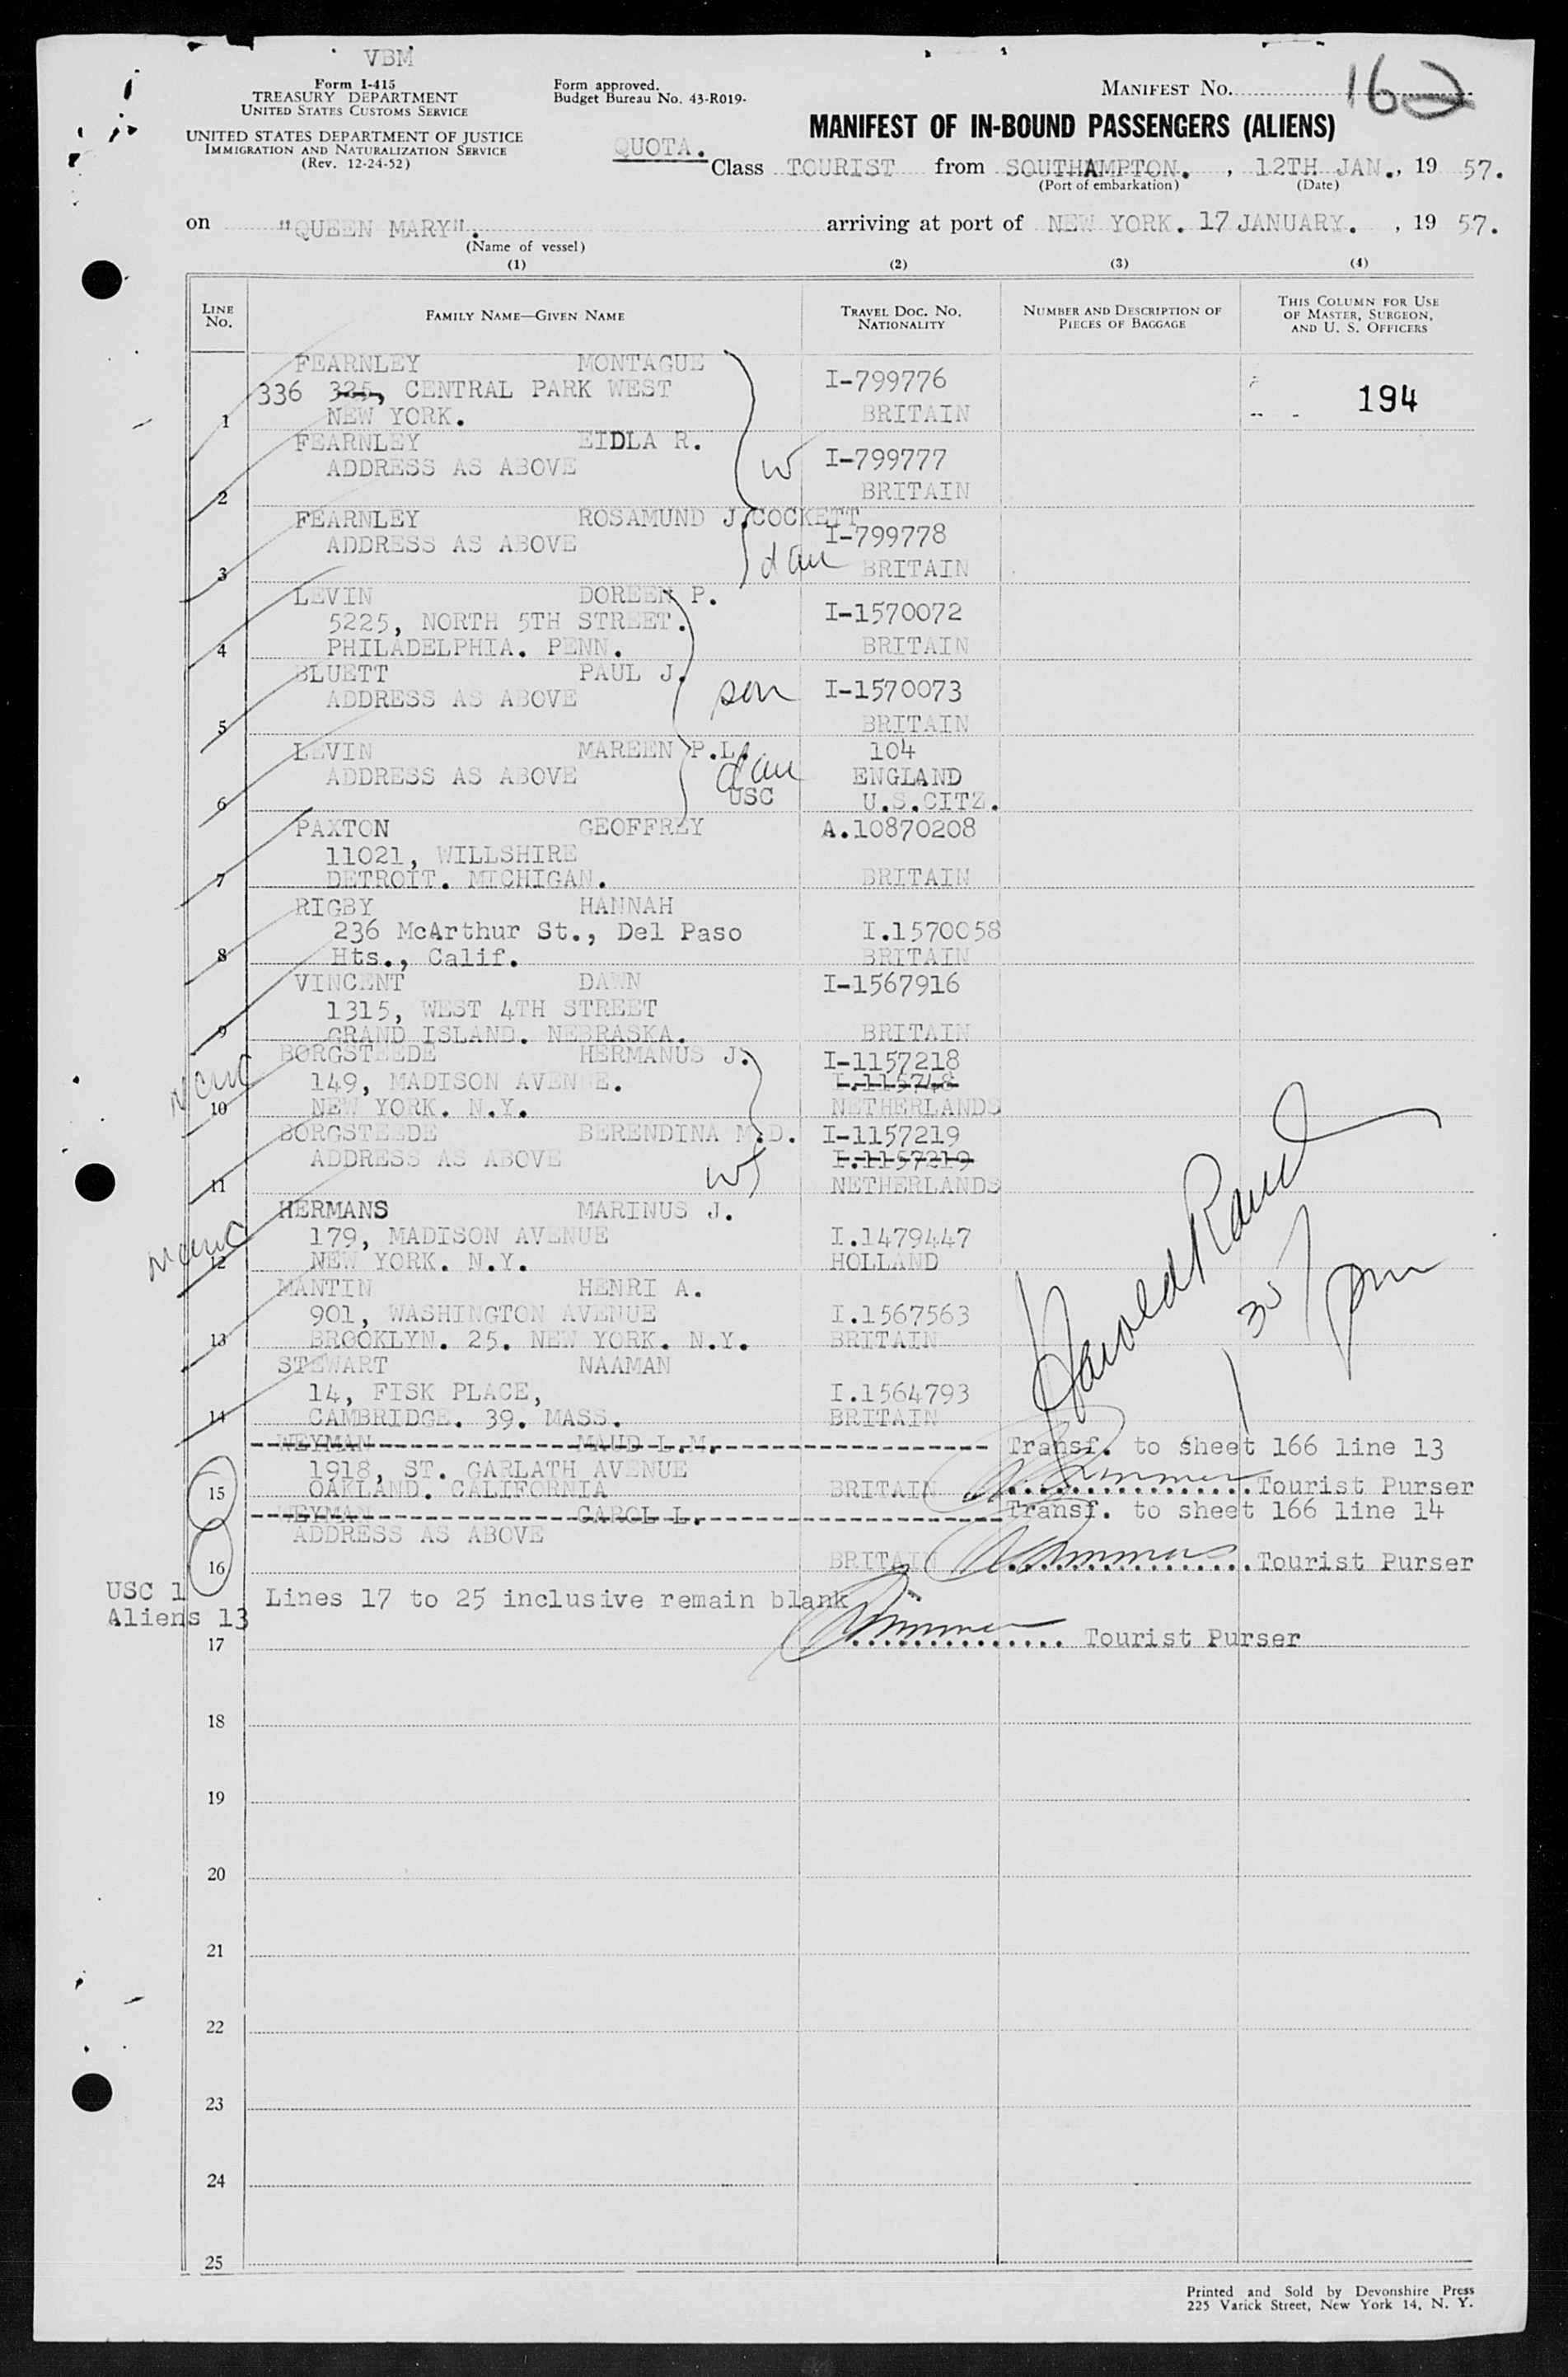 VBM
Form I-415
TREASURY DEPARTMENT
UNITED STATES CUSTOMS SERVICE
UNITED STATES DEPARTMENT OF JUSTICE
IMMIGRATION AND NATURALIZATION SERVICE
(Rev. 12-24-52)
Form approved.
Budget Bureau No. 43-R019-
MANIFEST NO. 162
MANIFEST OF IN-BOUND PASSENGERS (ALIENS)
QUOTA.
Class TOURIST from SOUTHAMPTON. , 12TH JAN., 19 57.
(Port of embarkation) (Date)
on "QUEEN MARY". arriving at port of NEW YORK. 17 JANUARY. , 19 57.
(Name of vessel)
(1) (2) (3) (4)
LINE NO.
FAMILY NAME—GIVEN NAME
TRAVEL DOC. NO. NATIONALITY
NUMBER AND DESCRIPTION OF PIECES OF BAGGAGE
THIS COLUMN FOR USE OF MASTER, SURGEON, AND U. S. OFFICERS
FEARNLEY MONTAGUE
336 325, CENTRAL PARK WEST I-799776
1 NEW YORK. BRITAIN 194
FEARNLEY EIDLA R.
ADDRESS AS ABOVE w I-799777
2 BRITAIN
FEARNLEY ROSAMUND J.COCKETT
ADDRESS AS ABOVE I-799778
3 dau BRITAIN
LEVIN DOREEN P.
5225, NORTH 5TH STREET. I-1570072
4 PHILADELPHIA. PENN. BRITAIN
BLUETT PAUL J.
ADDRESS AS ABOVE son I-1570073
5 BRITAIN
LEVIN MAREEN P.L. 104
ADDRESS AS ABOVE dau ENGLAND
6 USC U.S.CITZ.
PAXTON GEOFFREY A.10870208
11021, WILLSHIRE
7 DETROIT. MICHIGAN. BRITAIN
RIGBY HANNAH
236 McArthur St., Del Paso I.1570058
8 Hts., Calif. BRITAIN
VINCENT DAWN I-1567916
1315, WEST 4TH STREET
9 GRAND ISLAND. NEBRASKA. BRITAIN
BORGSTEEDE HERMANUS J. I-1157218
149, MADISON AVENUE. I.115748
10 NEW YORK. N.Y. NETHERLANDS
BORGSTEEDE BERENDINA M.D. I-1157219
ADDRESS AS ABOVE I.1157219
11 w NETHERLANDS
HERMANS MARINUS J.
179, MADISON AVENUE I.1479447
12 NEW YORK. N.Y. HOLLAND
MANTIN HENRI A.
901, WASHINGTON AVENUE I.1567563
13 BROOKLYN. 25. NEW YORK. N.Y. BRITAIN
STEWART NAAMAN
14, FISK PLACE, I.1564793
14 CAMBRIDGE. 39. MASS. BRITAIN
Harold Rand
1 30 pm
WEYMAN MAUD L.M. Transf. to sheet 166 line 13
1918, ST. GARLATH AVENUE
15 OAKLAND. CALIFORNIA BRITAIN Tourist Purser
WEYMAN CAROL L. Transf. to sheet 166 line 14
ADDRESS AS ABOVE
16 BRITAIN Tourist Purser
USC 1 Lines 17 to 25 inclusive remain blank
Aliens 13
17 Tourist Purser
18
19
20
21
22
23
24
25
Printed and Sold by Devonshire Press
225 Varick Street, New York 14, N. Y.